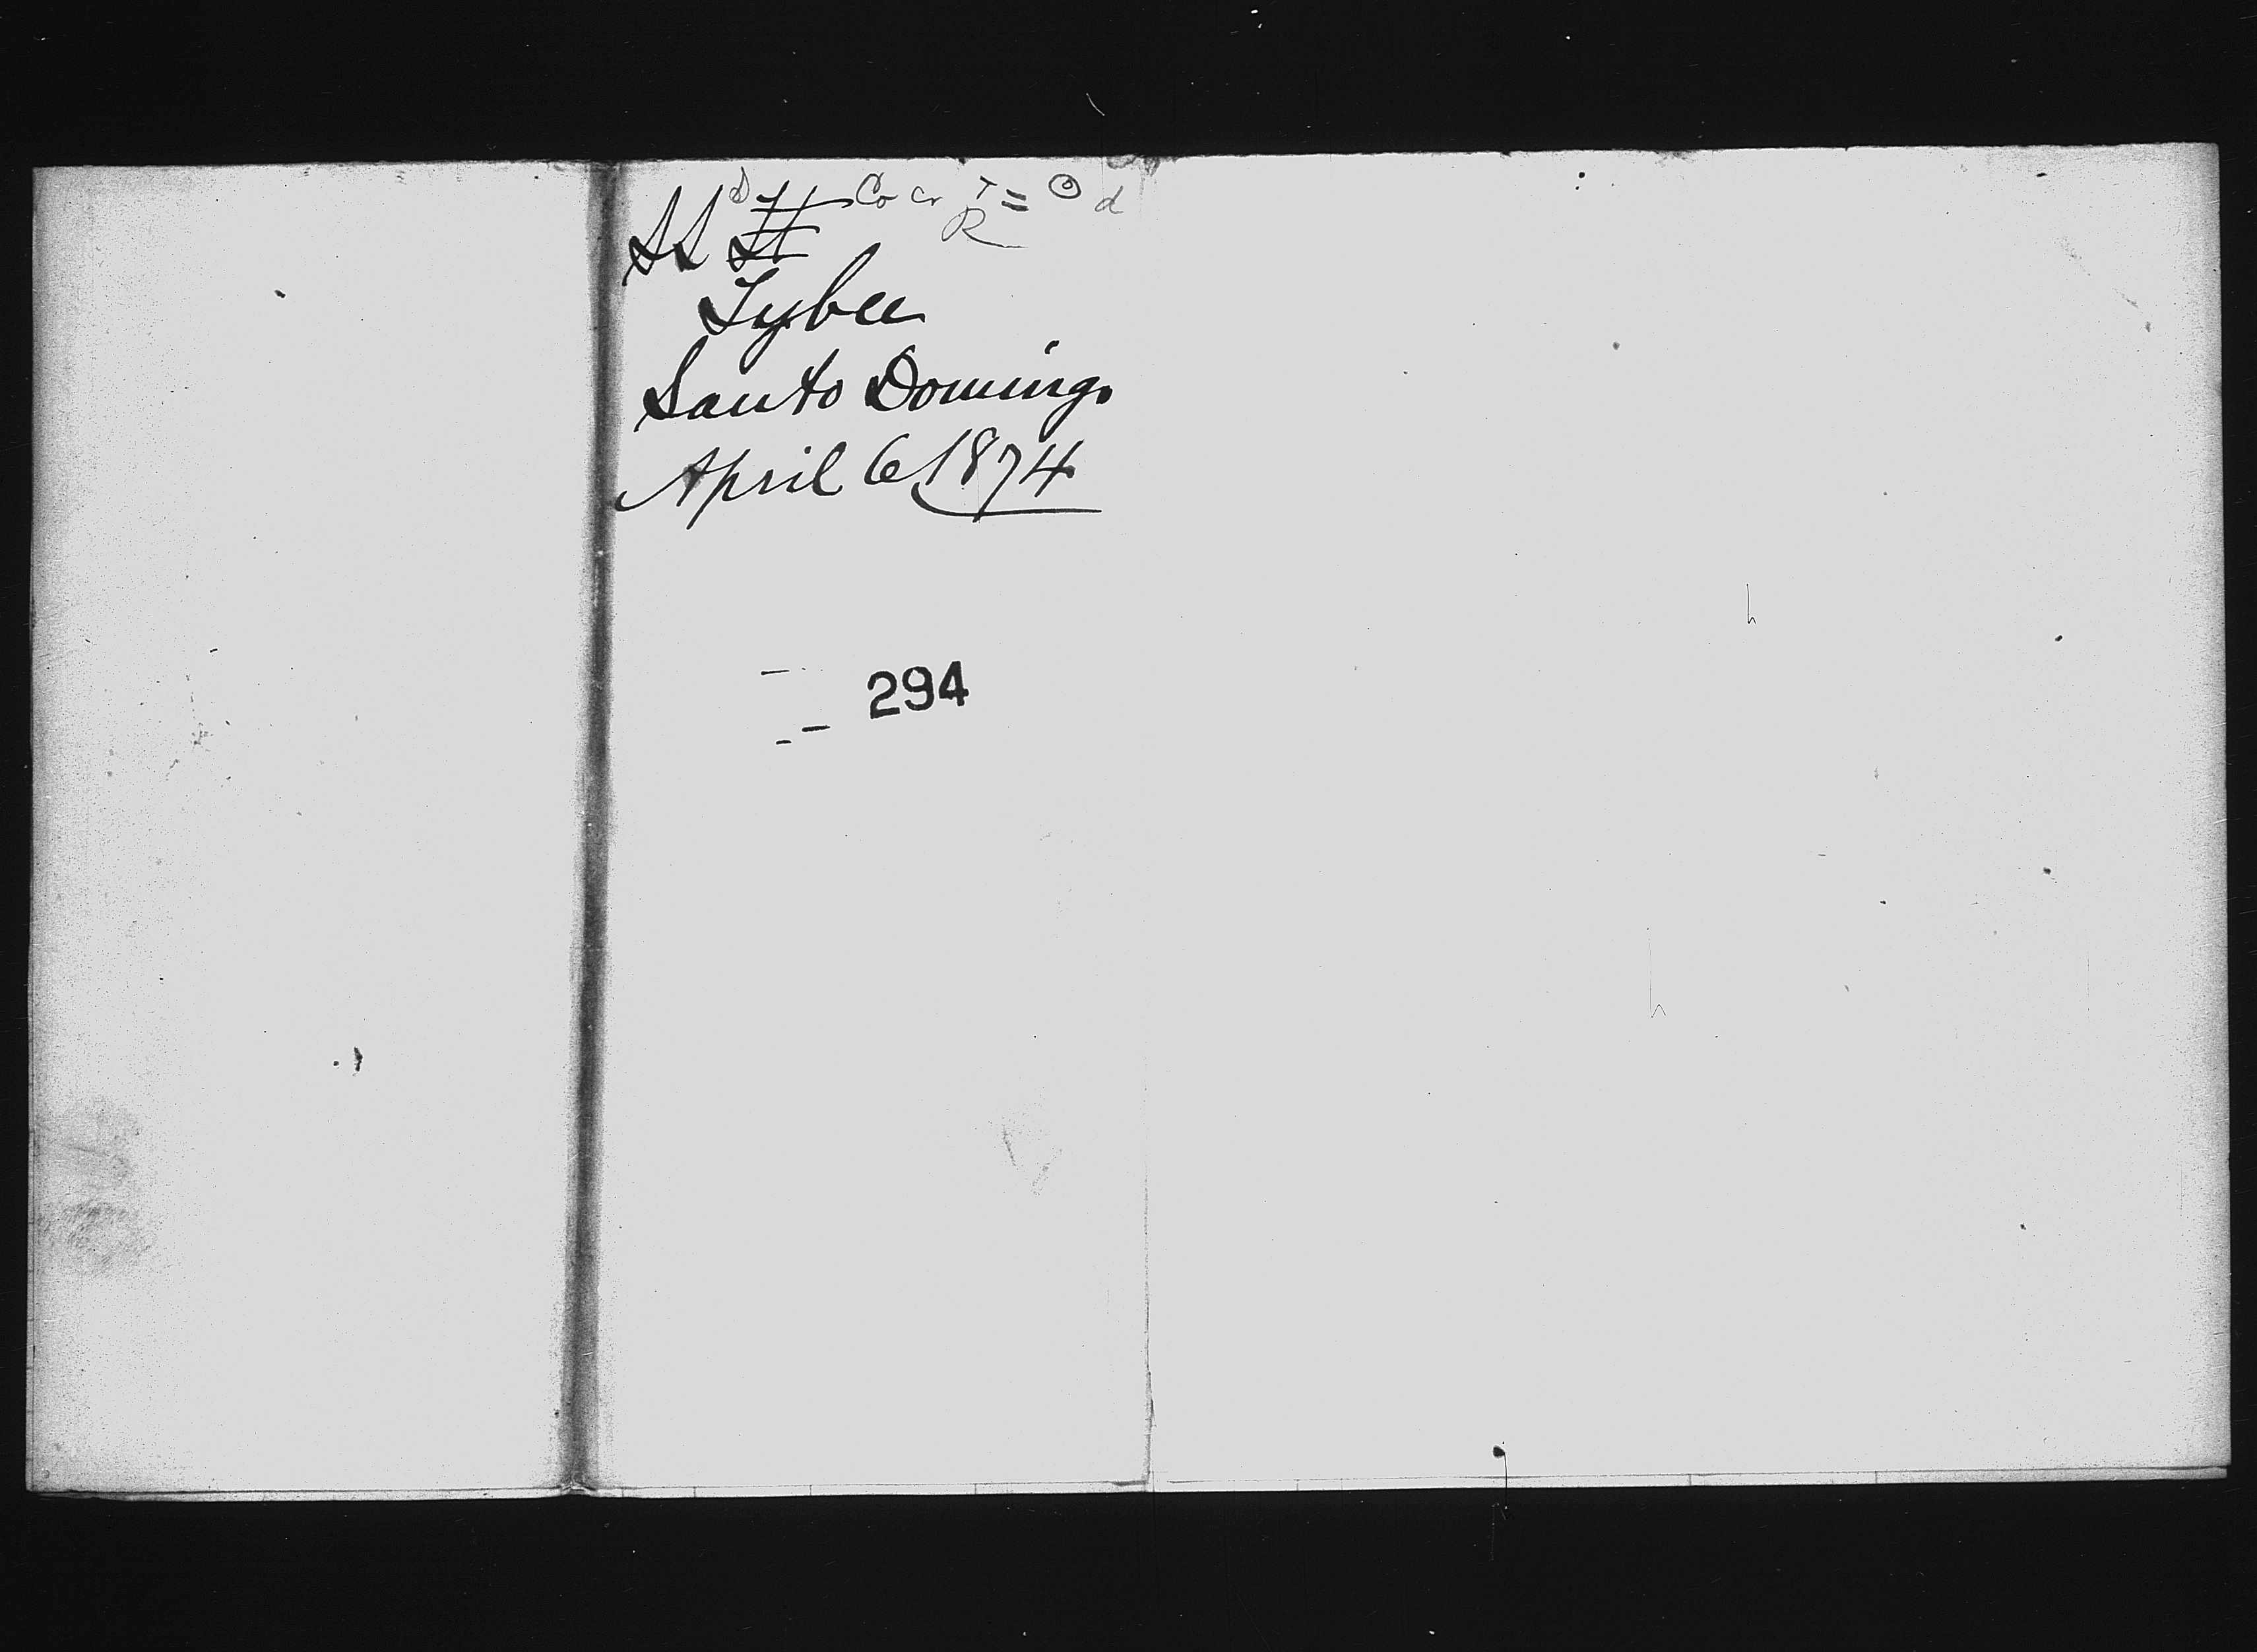 Co Cr T = d
R
SS
Tybee
Santo Domingo
April 6 1874
294